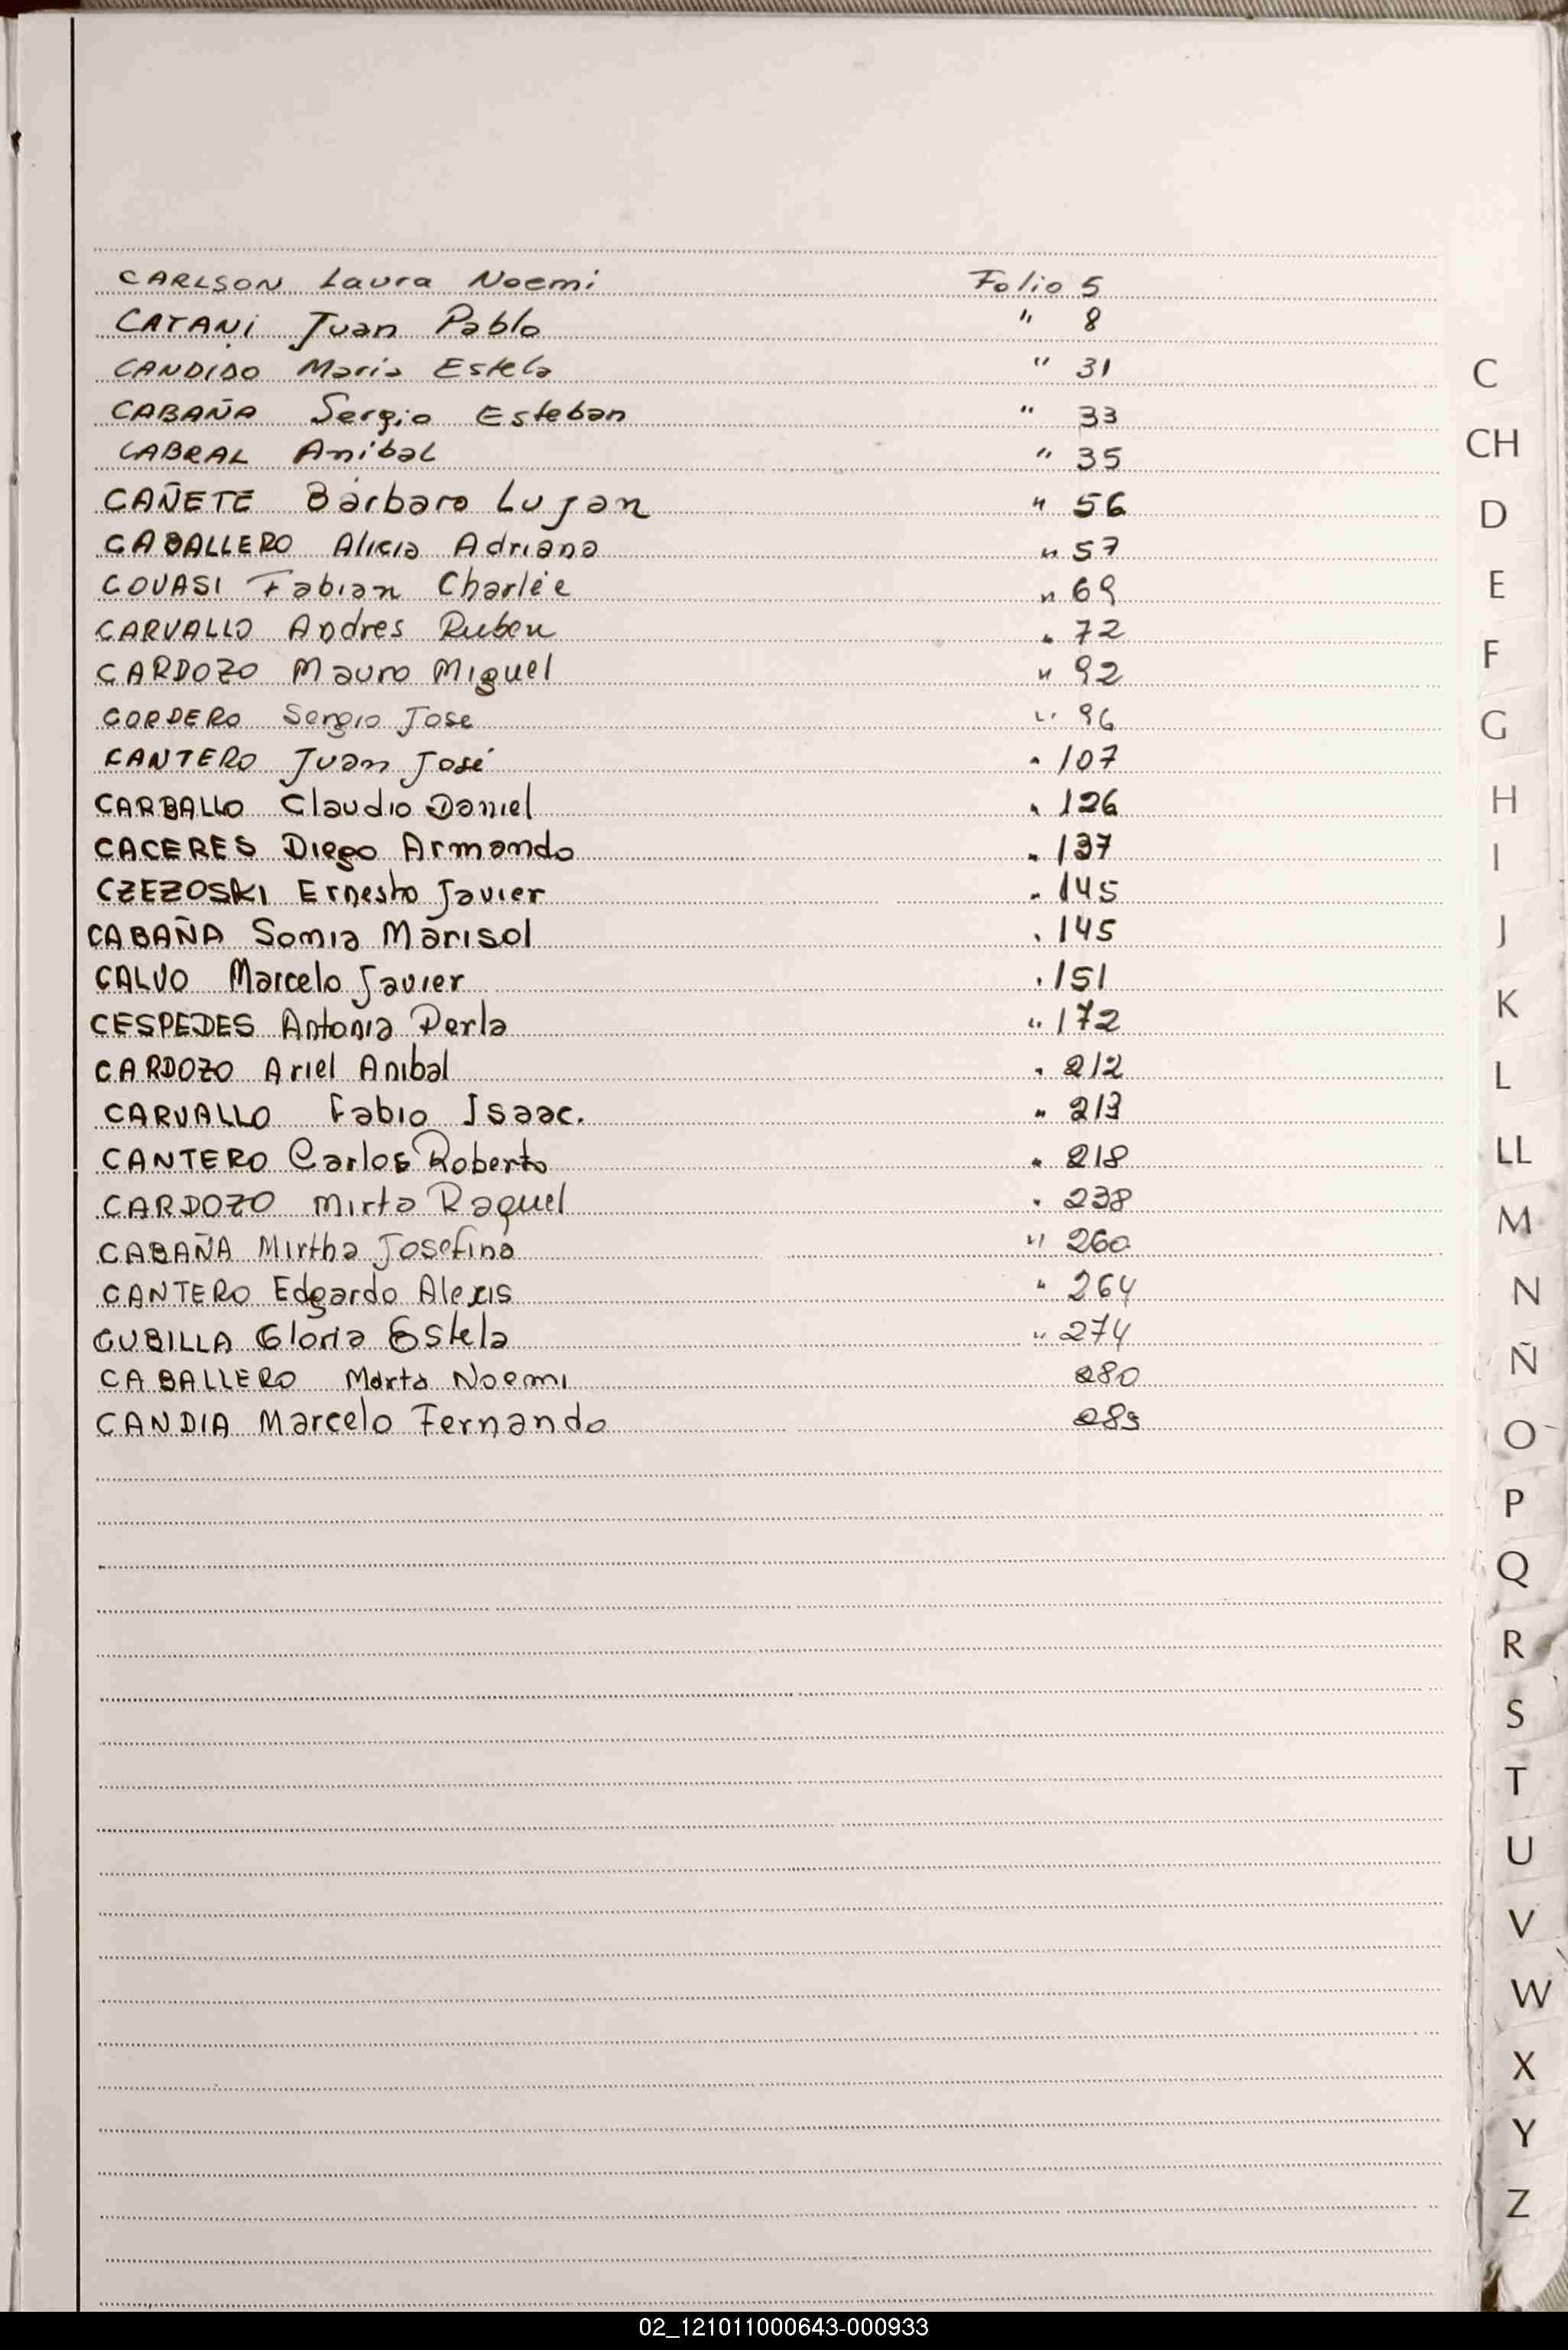 CARLSON Laura Noemi Folio 5
CATANi Juan Pablo " 8
CANDIDO Maria Estela " 31
CABAÑA Sergio Esteban " 33
CABRAL Anibal " 35
CAÑETE Bárbara Lujan " 56
CABALLERO Alicia Adriana " 57
COVASI Fabian Charlée " 69
CARVALLO Andres Ruben " 72
CARDOZO Mauro Miguel " 92
CORDERO Sergio Jose " 96
CANTERO Juan José " 107
CARBALLO Claudio Daniel " 126
CACERES Diego Armando " 137
CZEZOSKI Ernesto Javier " 145
CABAÑA Sonia Marisol " 145
CALVO Marcelo Javier " 151
CESPEDES Antonia Perla " 172
CARDOZO Ariel Anibal " 212
CARVALLO Fabio Isaac. " 213
CANTERO Carlos Roberto " 218
CARDOZO Mirta Raquel " 238
CABAÑA Mirtha Josefina " 260
CANTERO Edgardo Alexis " 264
CUBILLA Gloria Estela " 274
CABALLERO Marta Noemi 280
CANDIA Marcelo Fernando 289
C
CH
D
E
F
G
H
I
J
K
L
LL
M
N
Ñ
O
P
Q
R
S
T
U
V
W
X
Y
Z
02_121011000643-000933